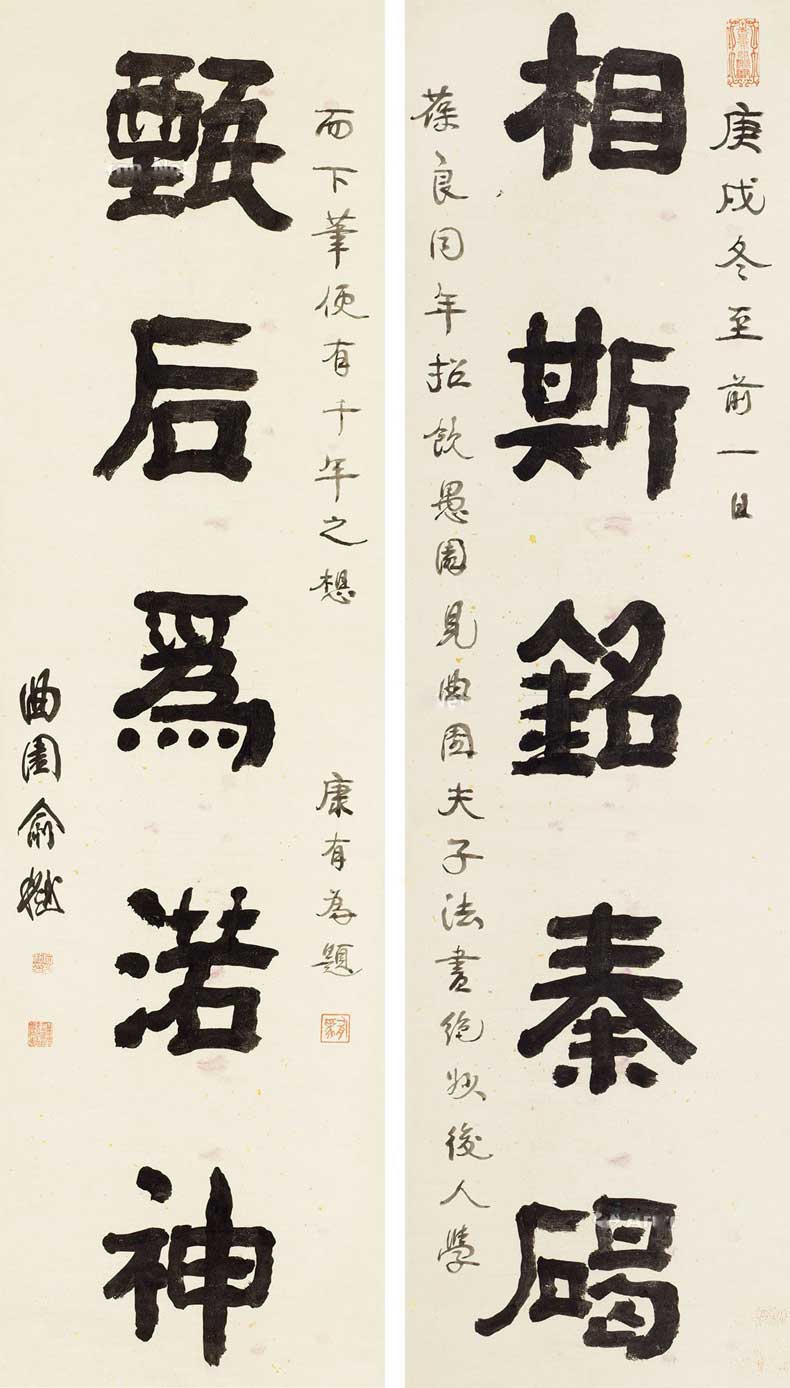 庚戌冬至前一日
相斯銘秦碣
葆良同年招飲愚園見曲園夫子法書絶妙後人學
而下筆便有千年之想
康有為題
甄后爲渃神
曲園俞樾